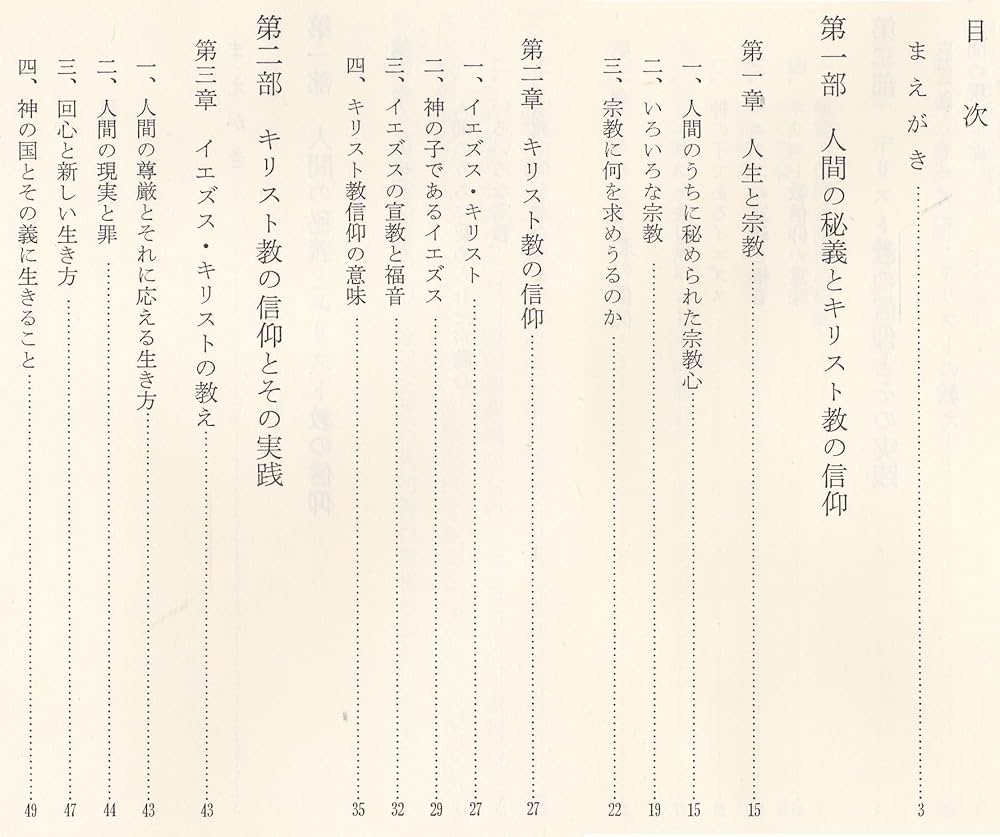 目次
まえがき……3
第一部　人間の秘義とキリスト教の信仰
第一章　人生と宗教……15
一、人間のうちに秘められた宗教心……15
二、いろいろな宗教……19
三、宗教に何を求めうるのか……22
第二章　キリスト教の信仰……27
一、イエズス・キリスト……27
二、神の子であるイエズス……29
三、イエズスの宣教と福音……32
四、キリスト教信仰の意味……35
第二部　キリスト教の信仰とその実践
第三章　イエズス・キリストの教え……43
一、人間の尊厳とそれに応える生き方……43
二、人間の現実と罪……44
三、回心と新しい生き方……47
四、神の国とその義に生きること……49